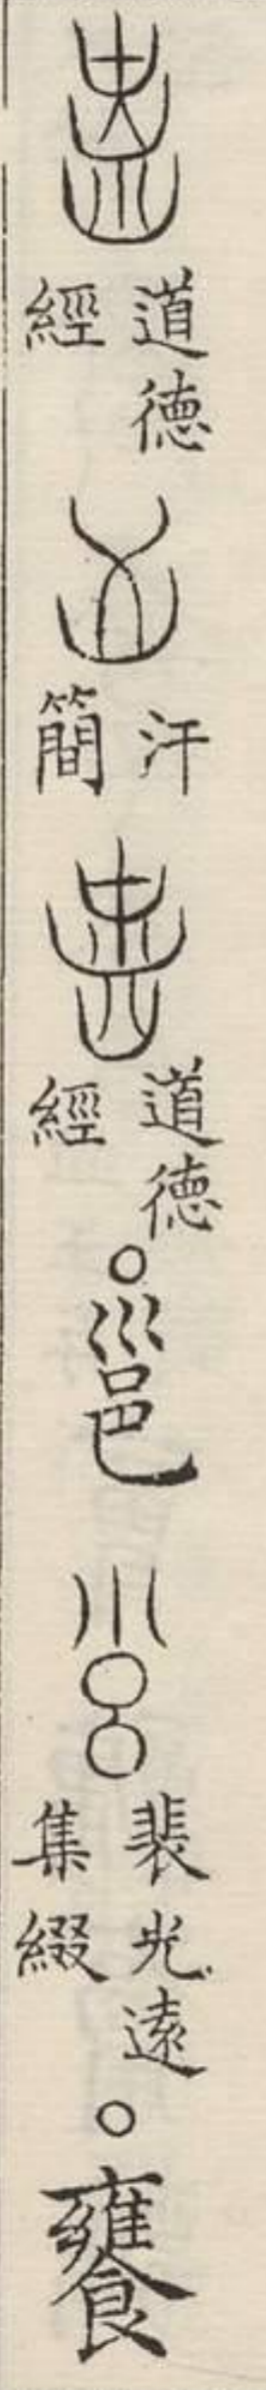 道德經 汗簡 道德經○邕 裴光遠集綴○饔